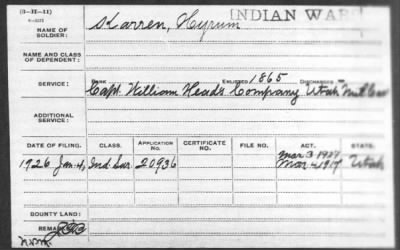 (3—III—11)
INDIAN WAR
NAME OF SOLDIER: Karren, Hyrum
NAME AND CLASS OF DEPENDENT:
SERVICE: RANK ENLISTED 1865 DISCHARGED
Capt. William Head's Company Utah
ADDITIONAL SERVICE:
DATE OF FILING. CLASS. APPLICATION NO. CERTIFICATE NO. FILE NO. ACT. STATE.
Mar 3 1927
1926 Jan. 4, Ind. Sur. 20936 Mar 4 1917 Utah
BOUNTY LAND:
REMARKS: